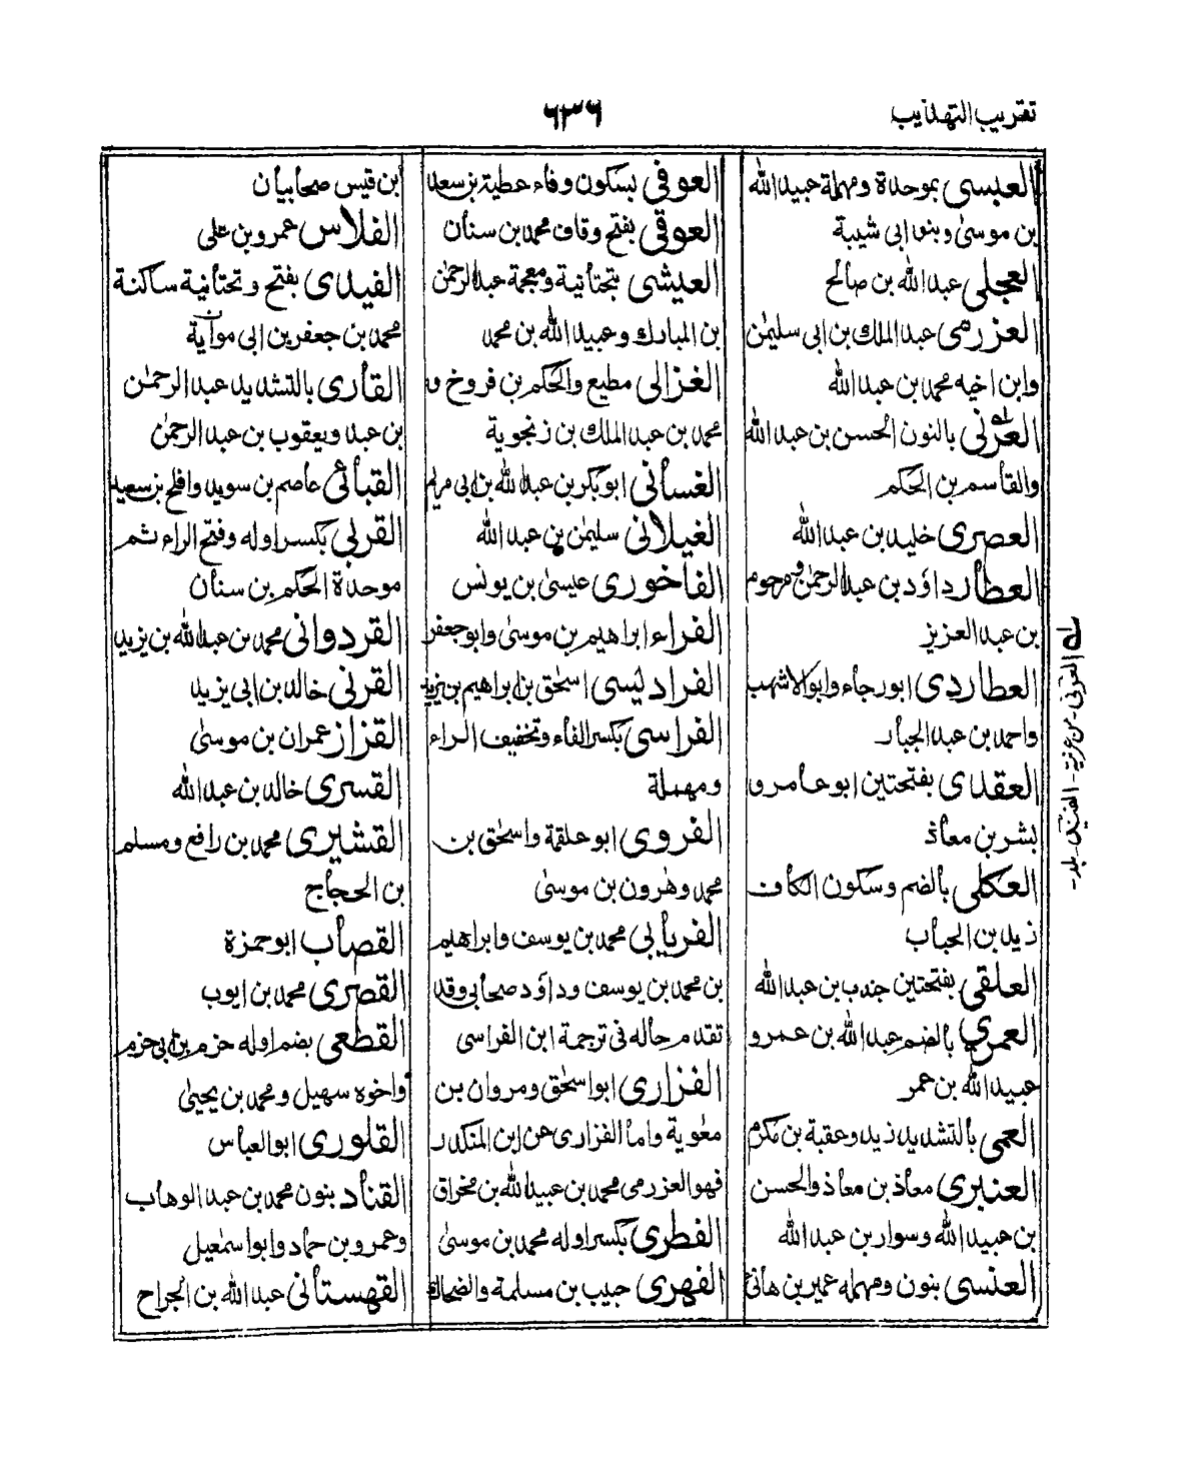 تقريب التهذيب
٦٣٦
العبسى بموحدة ومهملة عبيد الله
بن موسىٰ وبنو ابى شيبة
العجلى عبد الله بن صالح
العزرمى عبد الملك بن ابى سليمٰن
وابن اخيه محمد بن عبد الله
العرنى بالنون الحسن بن عبد الله
والقاسم بن الحكم
العصرى خليد بن عبد الله
العطار داؤد بن عبد الرحمٰن ومرحوم
بن عبد العزيز
العطاردى ابو رجاء وابو الاشهب
واحمد بن عبد الجبار
العقدى بفتحتين ابو عامر و
بشر بن معاذ
العكلى بالضم وسكون الكاف
زيد بن الحباب
العلقى بفتحتين جندب بن عبد الله
العمرى بالضم عبد الله بن عمر و
عبيد الله بن عمر
العمى بالتشديد زيد وعقبة بن مكرم
العنبرى معاذ بن معاذ والحسن
بن عبيد الله وسوار بن عبد الله
العنسى بنون ومهمله عمير بن هانئ
العوفى بسكون وفاء عطية بن سعد
العوقى بفتح وقاف محمد بن سنان
العيشى بتحتانية ومعجمة عبد الرحمٰن
بن المبارك وعبيد الله بن محمد
الغزالى مطيع والحكم بن فروخ و
محمد بن عبد الملك بن زنجوية
الغسانى ابو بكر بن عبد الله بن ابى مريم
الغيلانى سليمٰن بن عبد الله
الفاخورى عيسىٰ بن يونس
الفراء ابراهيم بن موسىٰ وابو جعفر
الفراديسى اسحٰق بن ابراهيم بن يزيد
الفراسى بكسر الفاء وتخفيف الراء
ومهملة
الفروى ابو علقمة واسحٰق بن
محمد وهٰرون بن موسىٰ
الفريابى محمد بن يوسف وابراهيم
بن محمد بن يوسف وداؤد صحابى وقد
تقدم حاله فى ترجمة ابن الفراسى
الفزارى ابو اسحٰق ومروان بن
معٰوية واما الفزارى عن ابن المنكدر
فهو العزرمى محمد بن عبيد الله بن مخراق
الفطرى بكسر اوله محمد بن موسىٰ
الفهرى حبيب بن مسلمة والضحاك
بن قيس صحابيان
الفلاس عمرو بن على
الفيدى بفتح وتحتانية ساكنة
محمد بن جعفر بن ابى مواتية
القارى بالتشديد عبد الرحمٰن
بن عبد ويعقوب بن عبد الرحمٰن
القبائى عاصم بن سويد وافلح بن سعيد
القربى بكسر اوله وفتح الراء ثم
موحدة الحكم بن سنان
القردوانى محمد بن عبد الله بن يزيد
القرنى خالد بن ابى يزيد
القزاز عمران بن موسىٰ
القسرى خالد بن عبد الله
القشيرى محمد بن رافع ومسلم
بن الحجاج
القصاب ابو حمزة
القصرى محمد بن ايوب
القطعى بضم اوله حزم بن ابى حزم
واخوه سهيل ومحمد بن يحيىٰ
القلورى ابو العباس
القناد بنون محمد بن عبد الوهاب
وعمرو بن حماد وابو اسمٰعيل
القهستانى عبد الله بن الجراح
له العرنى - من عرينة - الفتيك بلد -